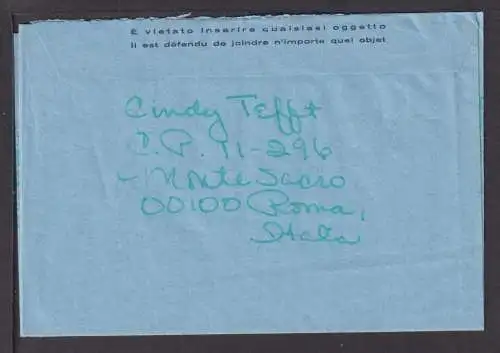 È vietato inserire qualsiasi oggetto
Il est défendu de joindre n'importe quel objet
Cindy Tefft
C.P. 11-296
- Monte Sacro
00100 Roma,
Italia